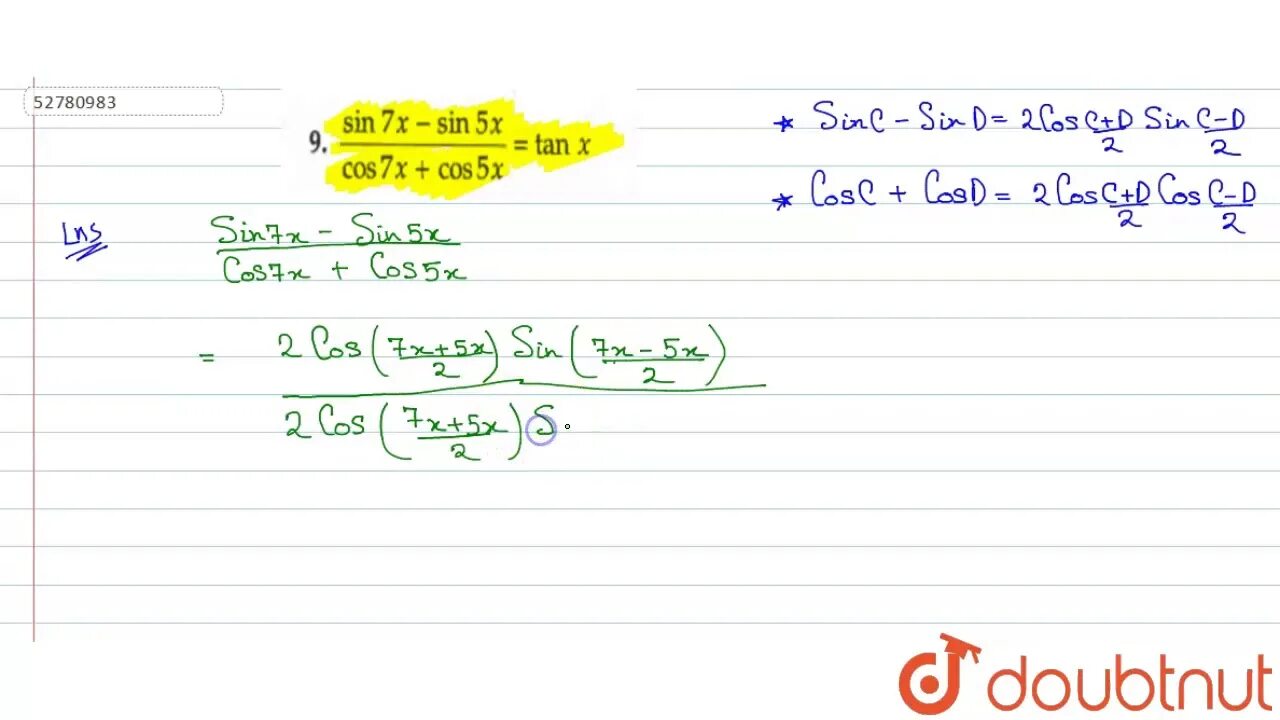 52780983
9. (sin 7x − sin 5x)/(cos 7x + cos 5x) = tan x
* SinC - SinD = 2Cos (C+D)/2 Sin (C-D)/2
* CosC + CosD = 2CosC+D/2 Cos C-D/2
LHS
Sin7x - Sin5x
Cos7x + Cos5x
= 2 Cos (7x+5x/2) Sin (7x-5x/2)
2 Cos (7x+5x/2) S
doubtnut